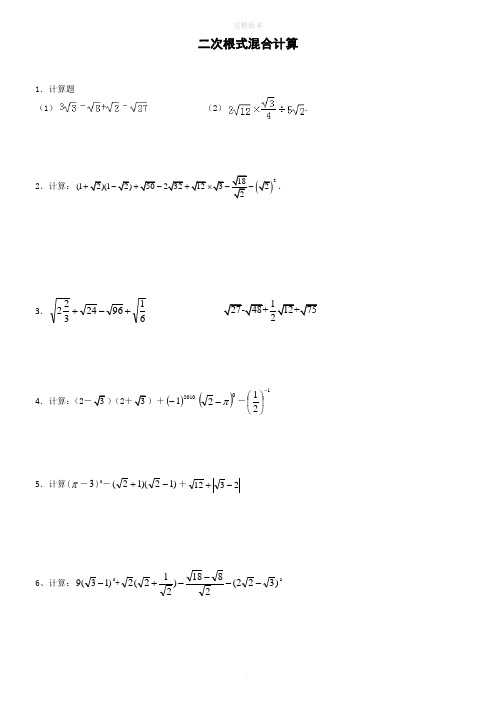 完整版本
二次根式混合计算
1．计算题
（1）3√3－√8+√2－√27 （2）2√12×√3/4÷5√2.
2．计算：(1+√2)(1−√2)+√50−2√32+√12×√3−√18/√2−(√2)²．
3．√(2 2/3)+√24−√96+√(1/6) √27-√48+1/2√12+√75
4．计算：（2－√3）（2＋√3）＋(−1)²⁰¹⁰(√2−π)⁰－(1/2)⁻¹
5．计算(π－3)⁰－(√2+1)(√2−1)＋√12+|√3−2|
6、计算：9(√3−1)⁰+√2(√2+1/√2)−(√18−√8)/√2−(2√2−√3)²
.